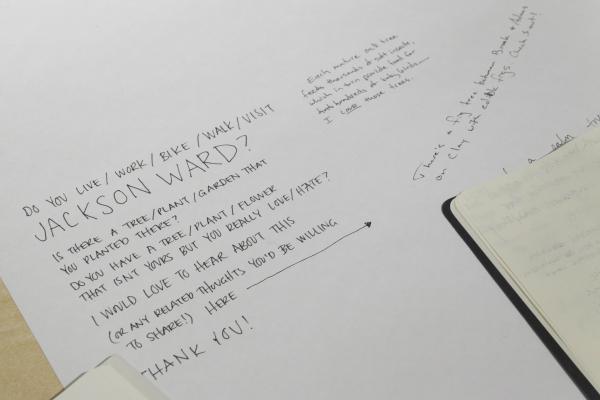 DO YOU LIVE / WORK / BIKE / WALK / VISIT
JACKSON WARD?
IS THERE A TREE/PLANT/GARDEN THAT
YOU PLANTED THERE?
DO YOU HAVE A TREE / PLANT / FLOWER
THAT ISN'T YOURS BUT YOU REALLY LOVE/HATE?
I WOULD LOVE TO HEAR ABOUT THIS
(OR ANY RELATED THOUGHTS YOU'D BE WILLING
TO SHARE!) HERE
THANK YOU!
Each mature oak tree
feeds thousands of soft insects,
which in turn provide food for
hundreds of baby birds
I love those trees.
There's a fig tree between Brook &
on Clay with edible figs. Check it out!